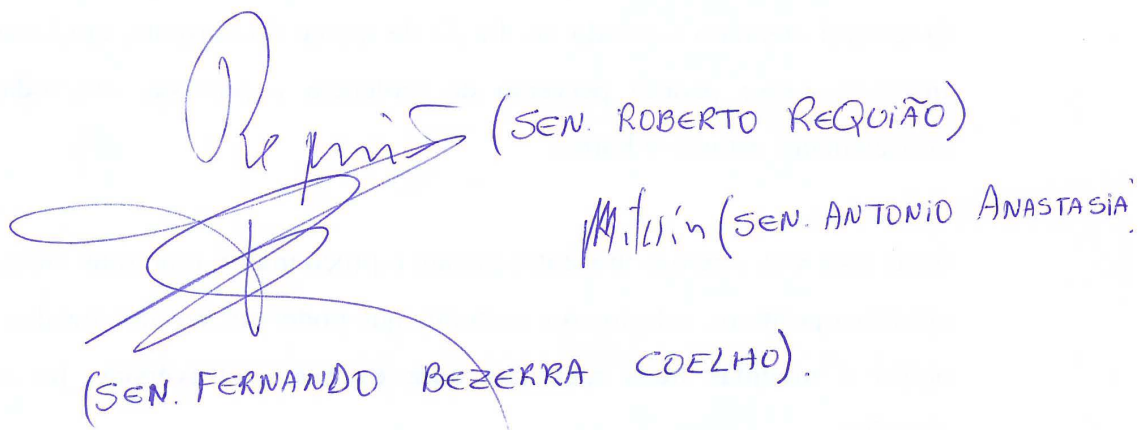 Requião (SEN. ROBERTO REQUIÃO)
(SEN. ANTONIO ANASTASIA)
(SEN. FERNANDO BEZERRA COELHO).